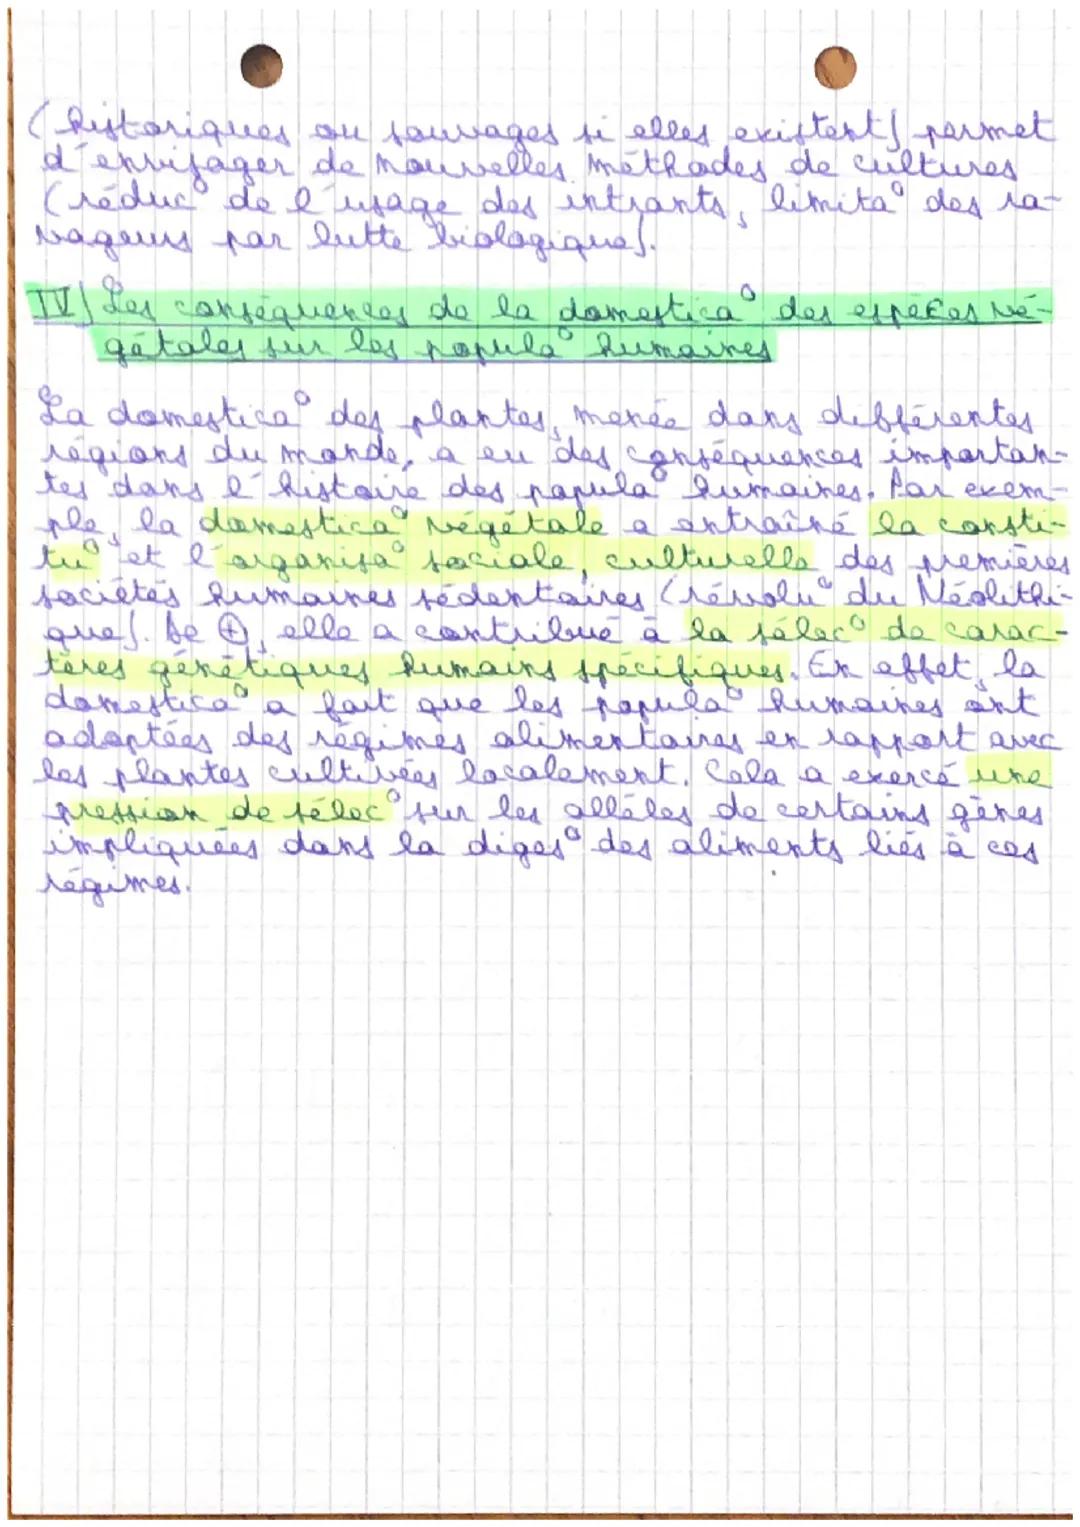 (historiques ou sauvages si elles existent) permet
d'envisager de nouvelles méthodes de cultures
(réduc° de l'usage des intrants, limita° des ra-
vageurs par lutte biologique).
IV) Les conséquences de la domestica° des espèces vé-
gétales sur les popula° humaines
La domestica° des plantes, menée dans différentes
régions du monde, a eu des conséquences importan-
tes dans l'histoire des popula° humaines. Par exem-
ple, la domestica° végétale a entraîné la consti-
tu° et l'organisa° sociale, culturelle des premières
sociétés humaines sédentaires (révolu° du Néolithi-
que). De ⊕, elle a contribué à la sélec° de carac-
tères génétiques humains spécifiques. En effet, la
domestica° a fait que les popula° humaines ont
adoptées des régimes alimentaires en rapport avec
les plantes cultivées localement. Cela a exercé une
pression de sélec° sur les allèles de certains gènes
impliquées dans la diges° des aliments liés à ces
régimes.